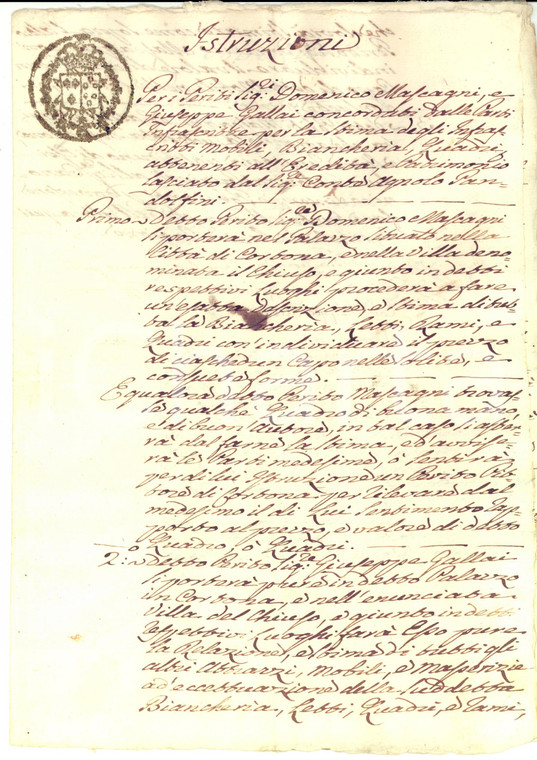 Istruzioni
Per i Periti Sig.ri Domenico Mascagni, e
Giuseppe Gallai concordati dalle Parti
Infrascritte per la Stima degli Infra-
scritti Mobili Biancheria, Quadri
attenenti all'Eredità, e Patrimonio
lasciato dal Sig.re Conte Agnolo Pan-
dolfini.
Primo Detto Perito Sig.re Domenico Mascagni
si porterà nel Palazzo situato nella
Città di Cortona, e nella Villa deno-
minata il Chiuso, e giunto in detti
respettivi Luoghi procederà a fare
un'esatta Descrizione, e Stima di tut-
ta la Biancheria, Letti, Rami, e
Quadri con individuare il prezzo
di ciaschedun Capo nelle solite, e
consuete forme.
E qualora detto Perito Mascagni trovas-
se qualche Quadro di buona mano,
e di buon'Autore, in tal caso si aster-
rà dal farne la Stima, ed avvise-
rà le Parti medesime, o sentirà
per di lui Istruzione un Perito Pit-
tore di Cortona per rilevare dal
medesimo il di Lui sentimento rap-
porto al prezzo, e valore di detto
o Quadro, o Quadri.
2.o Detto Perito Sig.re Giuseppe Gallai
si porterà pure in detto Palazzo
in Cortona, e nell'enunciata
Villa del Chiuso, e giunto in detti
respettivi Luoghi farà Esso pure
la Relazione, e Stima di tutti gli
altri Attrazzi, Mobili, e Masserizie
ad eccettuazione della suddetta
Biancheria, Letti, Quadri, e Rami,